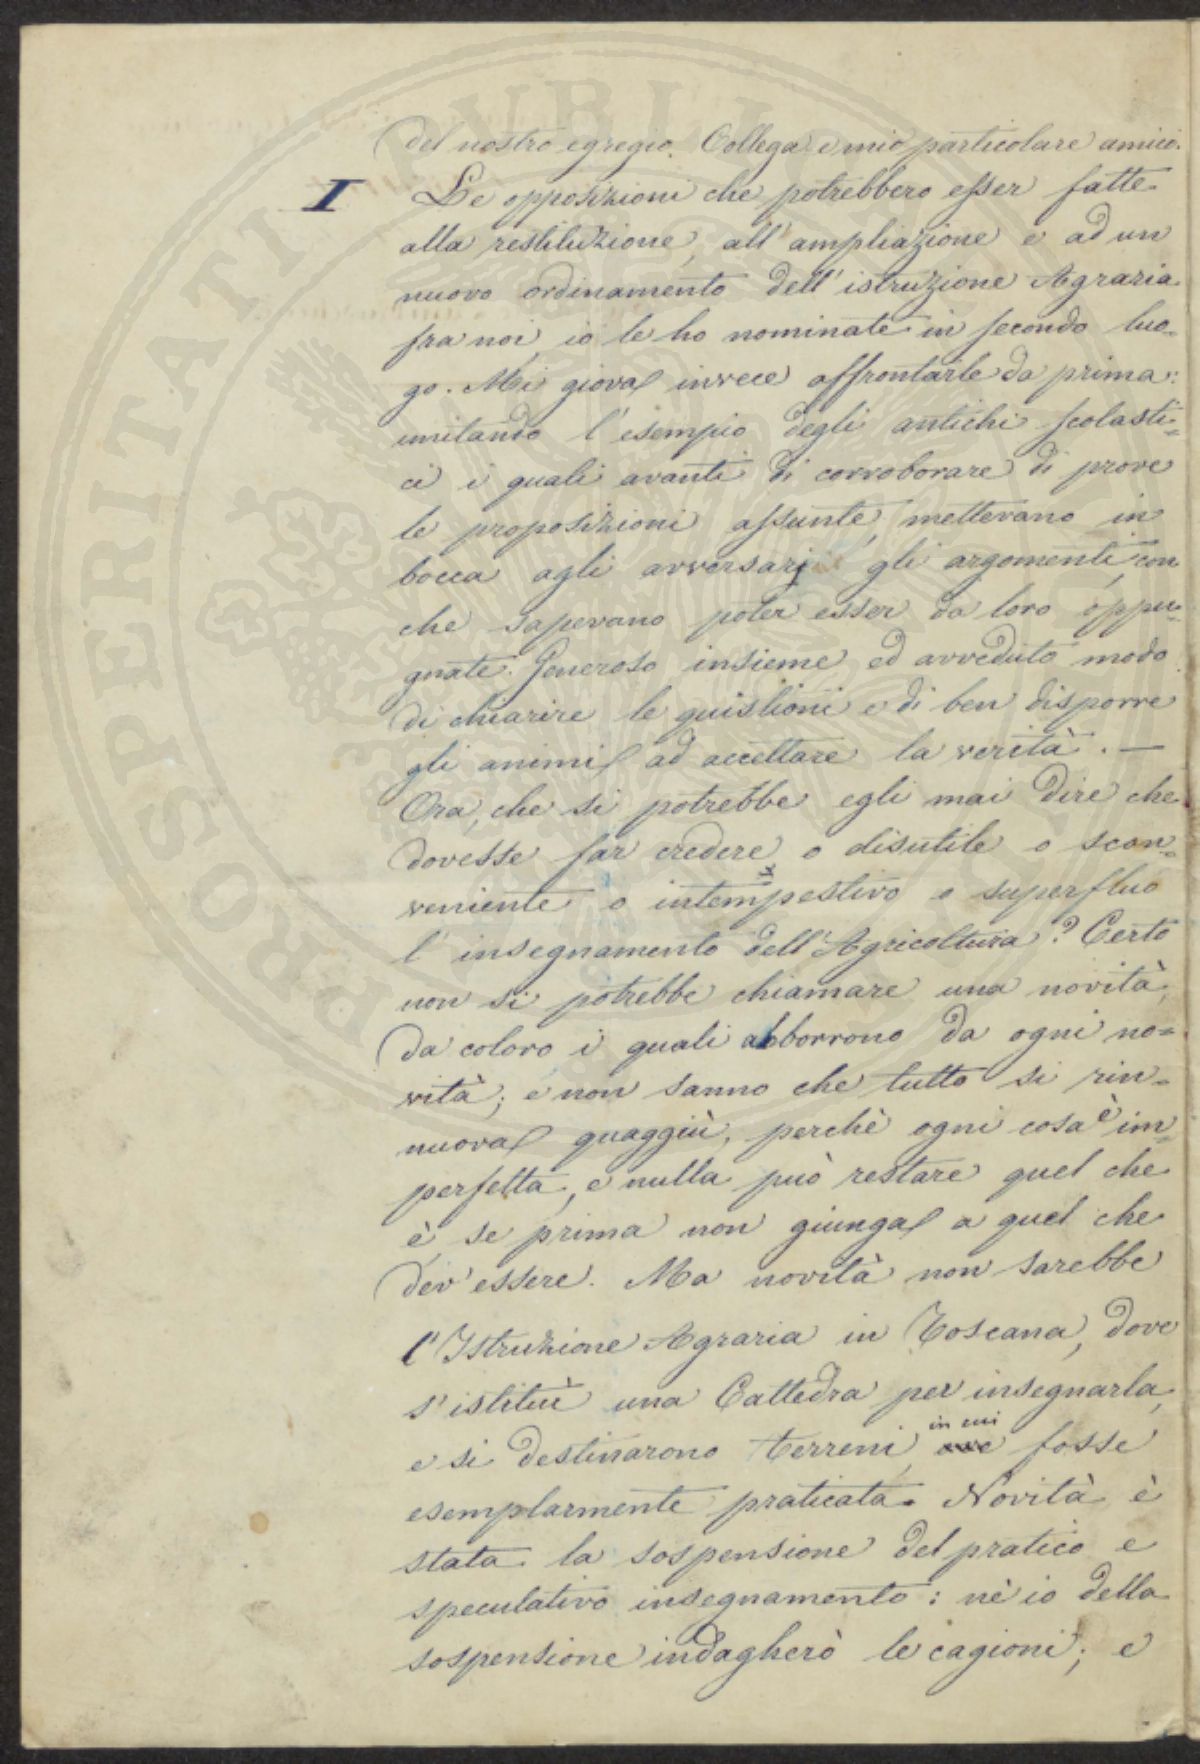 del nostro egregio Collega e mio particolare amico.
I Le opposizioni che potrebbero esser fatte
alla restituzione, all'ampliazione e ad un
nuovo ordinamento dell'istruzione Agraria
fra noi, io le ho nominate in secondo luo=
go. Mi giova invece affrontarle da prima:
imitando l'esempio degli antichi scolasti=
ci i quali avanti di corroborare di prove
le proposizioni assunte, mettevano in
bocca agli avversarj gli argomenti, con
che sapevano poter esser da loro oppu=
gnate. Generoso insieme ed avveduto modo
di chiarire le quistioni e di ben disporre
gli animi ad accettare la verità. —
Ora, che si potrebbe egli mai dire che
dovesse far credere o disutile o scon=
veniente o intempestivo o superfluo
l'insegnamento dell'Agricoltura? Certo
non si potrebbe chiamare una novità,
da coloro i quali abborrono da ogni no=
vità; e non sanno che tutto si rin=
nuova quaggiù, perchè ogni cosa è im=
perfetta, e nulla può restare quel che
è, se prima non giunga a quel che
dev'essere. Ma novità non sarebbe
l'Istruzione Agraria in Toscana, dove
s'istituì una Cattedra per insegnarla,
e si destinarono terreni, in cui fosse
esemplarmente praticata. Novità è
stata la sospensione del pratico e
speculativo insegnamento: nè io della
sospensione indagherò le cagioni; e
PROSPERITATI PUBLI